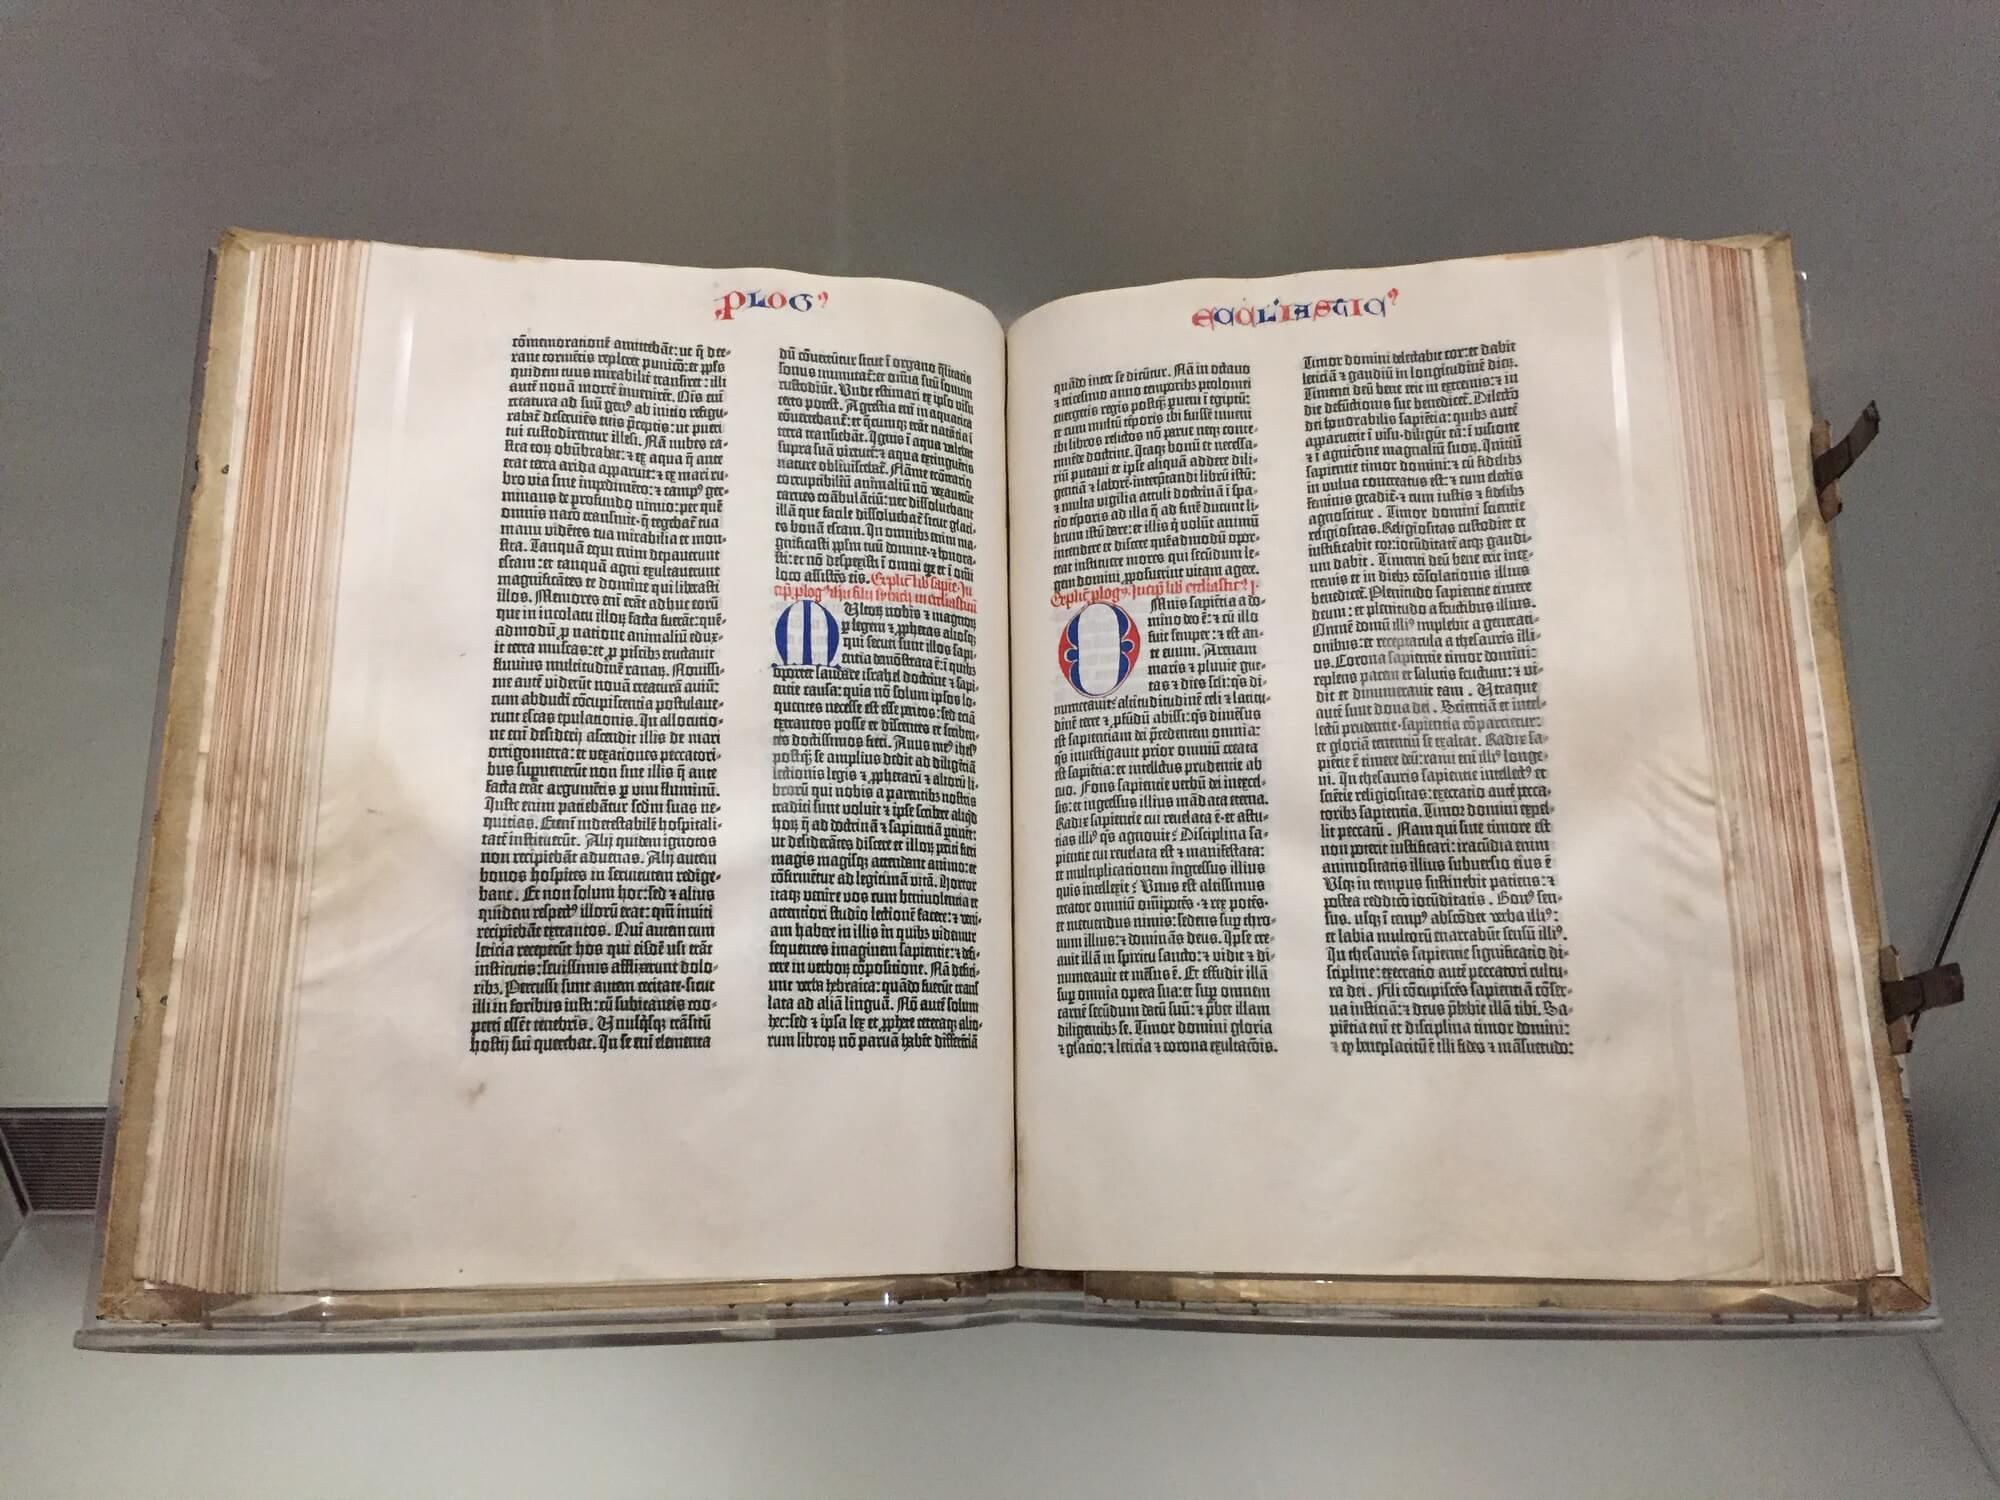 PLOG⁹
cōmemorationē amittebāt: ut q̄ dee-
rant tormētis repleret punicō: et pp̄ls
quidem tuus mirabilit̄ transiret: illi
autē nouā mortē inuenirēt. Oīs enī
creatura ad suū gen⁹ ab initio refigu-
rabat̄ deseruiēs tuis p̄ceptis: ut pueri
tui custodirentur illesi. Nā nubes ca-
stra eoꝝ obūbrabat: ⁊ ex aqua q̄ ante
erat terra arida apparuit: ⁊ ex mari ru-
bro via sine impedimēto: ⁊ camp⁹ ger-
minans de profundo nimio: per quē
omnis nacō transiuit· q̄ tegebat̄ tua
manu vidētes tua mirabilia et mon-
stra. Tanquā equi enim depauerunt
escam: et tanquā agni exultauerunt
magnificātes te domine qui liberasti
illos. Memores enī erāt adhuc eorū
que in incolatu illoꝝ facta fuerāt: quē-
admodū ꝓ natione animaliū edux-
it terra muscas: et ꝓ piscibꝫ eructauit
fluuius multitudinē ranaꝝ. Nouissi-
me autē viderūt nouā creaturā auiū:
cum abducti cōcupiscentia postulaue-
runt escas epulationis. In allocutio-
ne enī desiderij ascendit illis de mari
ortigometra: et vexationes peccatori-
bus supuenerūt non sine illis q̄ ante
facta erāt argumētis ꝑ vim fluminū.
Iuste enim patiebātur sedm̄ suas ne-
quitias. Etenī indetestabilē hospitali-
tatē instituerūt. Alij quidem ignotos
non recipiebāt aduenas. Alij autem
bonos hospites in seruitutem redige-
bant. Et non solum hoc: sed ⁊ alius
quidem respect⁹ illorū erat: qm̄ inuiti
recipiebāt extraneos. Qui autem cum
leticia receperūt hos qui eisdē usi erāt
institutis: seuissimis afflixerunt dolo-
ribꝫ. Percussi sunt autem cecitate· sicut
illi in foribus iusti: cū subitaneis coo-
perti essēt tenebris. Vnusq̄sqꝫ trāsitū
hostij sui querebat. In se enī elementa
dū cōuertūtur sicut ī organo q̄litatis
sonus immutat̄: et omīa suū sonum
custodiūt. Vnde estimari ex ipso visu
certo potest. Agrestia enī in aquatica
cōuertebant̄: et q̄cumqꝫ erāt natātia ī
terrā transiebāt. Ignis ī aqua valebat
supra suā virtutē: ⁊ aqua extinguētis
nature obliuiscebat̄. Flāme ecōtrario
corruptibiliū animaliū nō vexauerūt
carnes coābulātiū: nec dissoluebant
illā que facile dissoluebat̄ sicut glaci-
es bonā escam. In omnibꝫ enim ma-
gnificasti pp̄lm tuū domine· ⁊ honora-
sti: et nō despexisti ī omni tpe et ī omī
loco assistēs eis. Explic̄ lib̄ sapīe· In-
cip̄ plog⁹ ihu filij syrach in eccliasticū
Multoꝝ nobis ⁊ magnoꝝ
ꝑ legem ⁊ ꝓphetas aliosqꝫ
qui secuti sunt illos sapi-
entia demōstrata ē: ī quibꝫ
oportet laudare israhel doctrine ⁊ sapi-
entie causa: quia nō solum ipsos lo-
quentes necesse est esse peritos: sed etiā
extraneos posse et discentes et scriben-
tes doctissimos fieri. Auus me⁹ ihesꝰ
postqꝫ se amplius dedit ad diligētiā
lectionis legis ⁊ ꝓphetarū ⁊ aliorū li-
brorū qui nobis a parentibꝫ nostris
traditi sunt voluit ⁊ ipse scribere aliqd
hoꝝ q̄ ad doctrinā ⁊ sapientiā ptinēt:
ut desiderātes discere et illoꝝ peritī facti
magis magisqꝫ attendant animo: et
cōfirmētur ad legitimā vitā. Hortor
itaqꝫ venire vos cum beniuolentia et
attentiori studio lectionē facere: ⁊ veni-
am habere in illis in quibꝫ videmur
sequentes imaginem sapientie: ⁊ defi-
cere in verboꝝ cōpositione. Nā defici-
unt verba hebraica: quādo fuerūt trans-
lata ad aliā linguā. Nō autē solum
hec: sed ⁊ ipsa lex et ꝓphete ceteraqꝫ alio-
rum libroꝝ nō paruā habēt differētiā
ECCL'IASTIC⁹
quādo inter se dicūtur. Nā in octauo
⁊ tricesimo anno temporibꝫ ptolomei
euergetis regis postqꝫ ꝑueni ī egiptū:
et cum multū tēporis ibi fuissē inueni
ibi libros relictos nō parue neqꝫ conte-
mnēde doctrine. Itaqꝫ bonū et necessa-
riū putaui et ipse aliquā addere dili-
gentiā ⁊ laborē· interp̄tandi librū istū:
⁊ multa vigilia attuli doctrinā ī spa-
tio tēporis ad illa q̄ ad finē ducunt li-
brum istū dare: et illis q̄ volūt animū
intendere et discere quēadmodū opor-
teat instituere mores qui secūdum le-
gem domini ꝓposuerint vitam agere.
Explic̄ plog⁹. Incip̄ lib̄ eccliastic⁹ I.
Omnis sapiētia a do-
mino deo ē: ⁊ cū illo
fuit semper: ⁊ est an-
te euum. Arenam
maris ⁊ pluuie gut-
tas ⁊ dies seli: q̄s di-
numerauit? altitudinē celi ⁊ latitu-
dinē terre ⁊ ꝓfūdū abissi: q̄s dimēsus
est sapientiam dei p̄cedentem omnia:
q̄s inuestigauit prior omniū creata
est sapiētia: et intellectus prudentie ab
euo. Fons sapientie verbū dei in excel-
sis: et ingressus illius mādata eterna.
Radix sapientie cui reuelata ē· et astu-
tias ill⁹ q̄s agnouit? Disciplina sa-
pientie cui reuelata est ⁊ manifestata:
et multiplicationem ingressus illius
quis intellexit? Vnus est altissimus
creator omniū omīpotēs· ⁊ rex potēs·
et metuendus nimis: sedens suꝑ thro-
num illius: ⁊ dominās deus. Ipse cre-
auit illā in spiritu sancto: ⁊ vidit ⁊ di-
numerauit et mēsus ē. Et effudit illā
suꝑ omnia opera sua: et suꝑ omnem
carnē secūdum datū suū: ⁊ p̄bet illam
diligentibꝫ se. Timor domini gloria
⁊ gl'atio: ⁊ leticia ⁊ corona exultacōis.
Timor domini delectabit cor: et dabit
leticiā ⁊ gaudiū in longitudinē dieꝝ.
Timenti deū bene erit in extremis: ⁊ in
die defūctionis sue benedicet̄. Dilectō
dei honorabilis sapiētia: quibꝫ autē
apparuerit ī visu· diligūt eā: ī visione
⁊ ī agnitōne magnaliū suoꝝ. Initiū
sapientie timor domini: ⁊ cū fidelibs
in vulua concreatus est: ⁊ cum electis
feminis gradit̄· ⁊ cum iustis ⁊ fidelibs
agnoscitur. Timor domini scientie
religiositas. Religiositas custodiet et
iustificabit cor: iocūditatē atqꝫ gaudi-
um dabit. Timenti deū bene erit in ex-
tremis et in diebꝫ cōsolationis illius
benedicet̄. Plenitudo sapientie timere
deum: et plenitudo a fructibus illius.
Omnē domū illi⁹ implebit a generati-
onibus: et receptacula a thesauris illi-
us. Corona sapientie timor domini:
replens pacem et salutis fructum: ⁊ vi-
dit et dinumerauit eam. Vtraque
autē sunt dona dei. Scientiā et intel-
lectū prudentie· sapientia cōpartietur:
et gloriā tenentiū se exaltat. Radix sa-
pietie ē timere deū: rami enī ill⁹ longe-
ui. In thesauris sapientie intellect⁹ et
sciētie religiositas: execratio autē pecca-
toribꝫ sapientia. Timor domini expel-
lit peccatū. Nam qui sine timore est
non poterit iustificari: iracūdia enim
animositatis illius subuersio eius ē
Vsqꝫ in tempus sustinebit patiens: ⁊
postea redditio iocūditatis. Bon⁹ sen-
sus· usqꝫ ī temp⁹ abscōdet verba illi⁹:
et labia multorū enarrabūt sensū illi⁹.
In thesauris sapientie significatio di-
scipline: execratio autē peccatori cultu-
ra dei. Fili cōcupiscēs sapientiā cōser-
ua iusticiā: ⁊ deus p̄bebit illā tibi. Sa-
piētia enī et disciplina timor domini:
⁊ qꝫ beneplacitū ē illi fides ⁊ māsuetudo: